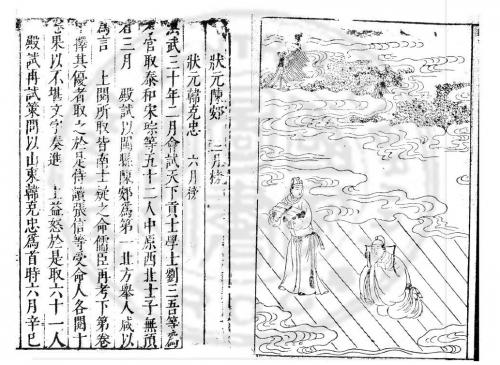 狀元陳䢿 二月榜
狀元韓克忠 六月榜
洪武三十年二月會試天下貢士學士劉三吾等爲
考官取泰和宋琮等五十二人中原西北士子無預
者三月 殿試以閩縣陳䢿爲第一北方舉人咸以
爲言 上閱所取皆南士疑之命儒臣再考下第卷
擇其優者取之於是侍讀張信等受命人各閱十
卷果以不堪文字奏進 上益怒於是取六十一人
殿試再試策問以山東韓克忠爲首時六月辛巳